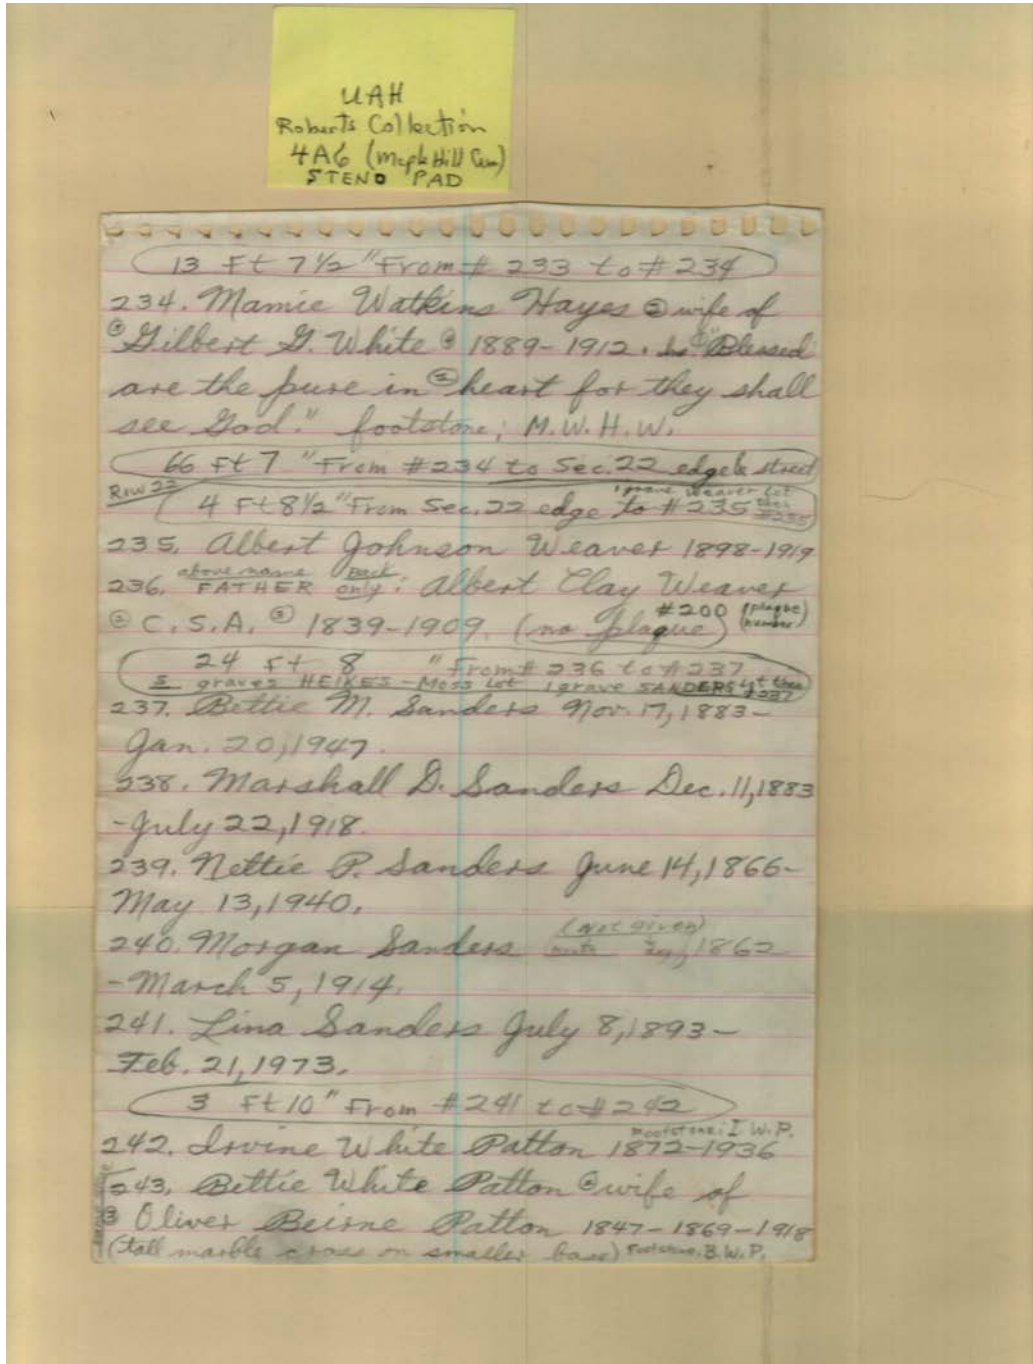 UAH
Roberts Collection
4A6 (Maple Hill Cem)
STENO PAD
13 Ft 7 1/2 "From # 233 to # 234
234. Mamie Watkins Hayes ② wife of
③ Gilbert G. White ④ 1889-1912. ① "Blessed
are the pure in ② heart for they shall
see God." footstone; M.W.H.W.
66 Ft 7 "From #234 to Sec. 22 edge & street
Row 22
1 grave Weaver Lot
4 Ft 8 1/2 "From Sec. 22 edge to #235 then #235
235. Albert Johnson Weaver 1898-1919
above name back
236. FATHER only: Albert Clay Weaver
② C.S.A. ③ 1839-1909. (no plaque) #200 (plaque number)
24 Ft 8 "From # 236 to #237
5 graves HEIKES - Moss Lot 1 grave SANDERS Lot then #237
237. Bettie M. Sanders Nov. 17, 1883-
Jan. 20, 1947.
238. Marshall D. Sanders Dec. 11, 1883
-July 22, 1918.
239. Nettie P. Sanders June 14, 1866-
May 13, 1940.
(Not given)
240. Morgan Sanders 1862
-March 5, 1914.
241. Lina Sanders July 8, 1893-
Feb. 21, 1973.
3 Ft 10" From #241 to #242
Footstone: I.W.P.
242. Irvine White Patton 1872-1936
243. Bettie White Patton ② wife of
③ Oliver Beirne Patton 1847-1869-1918
(tall marble cross on smaller base) Footstone: B.W.P.